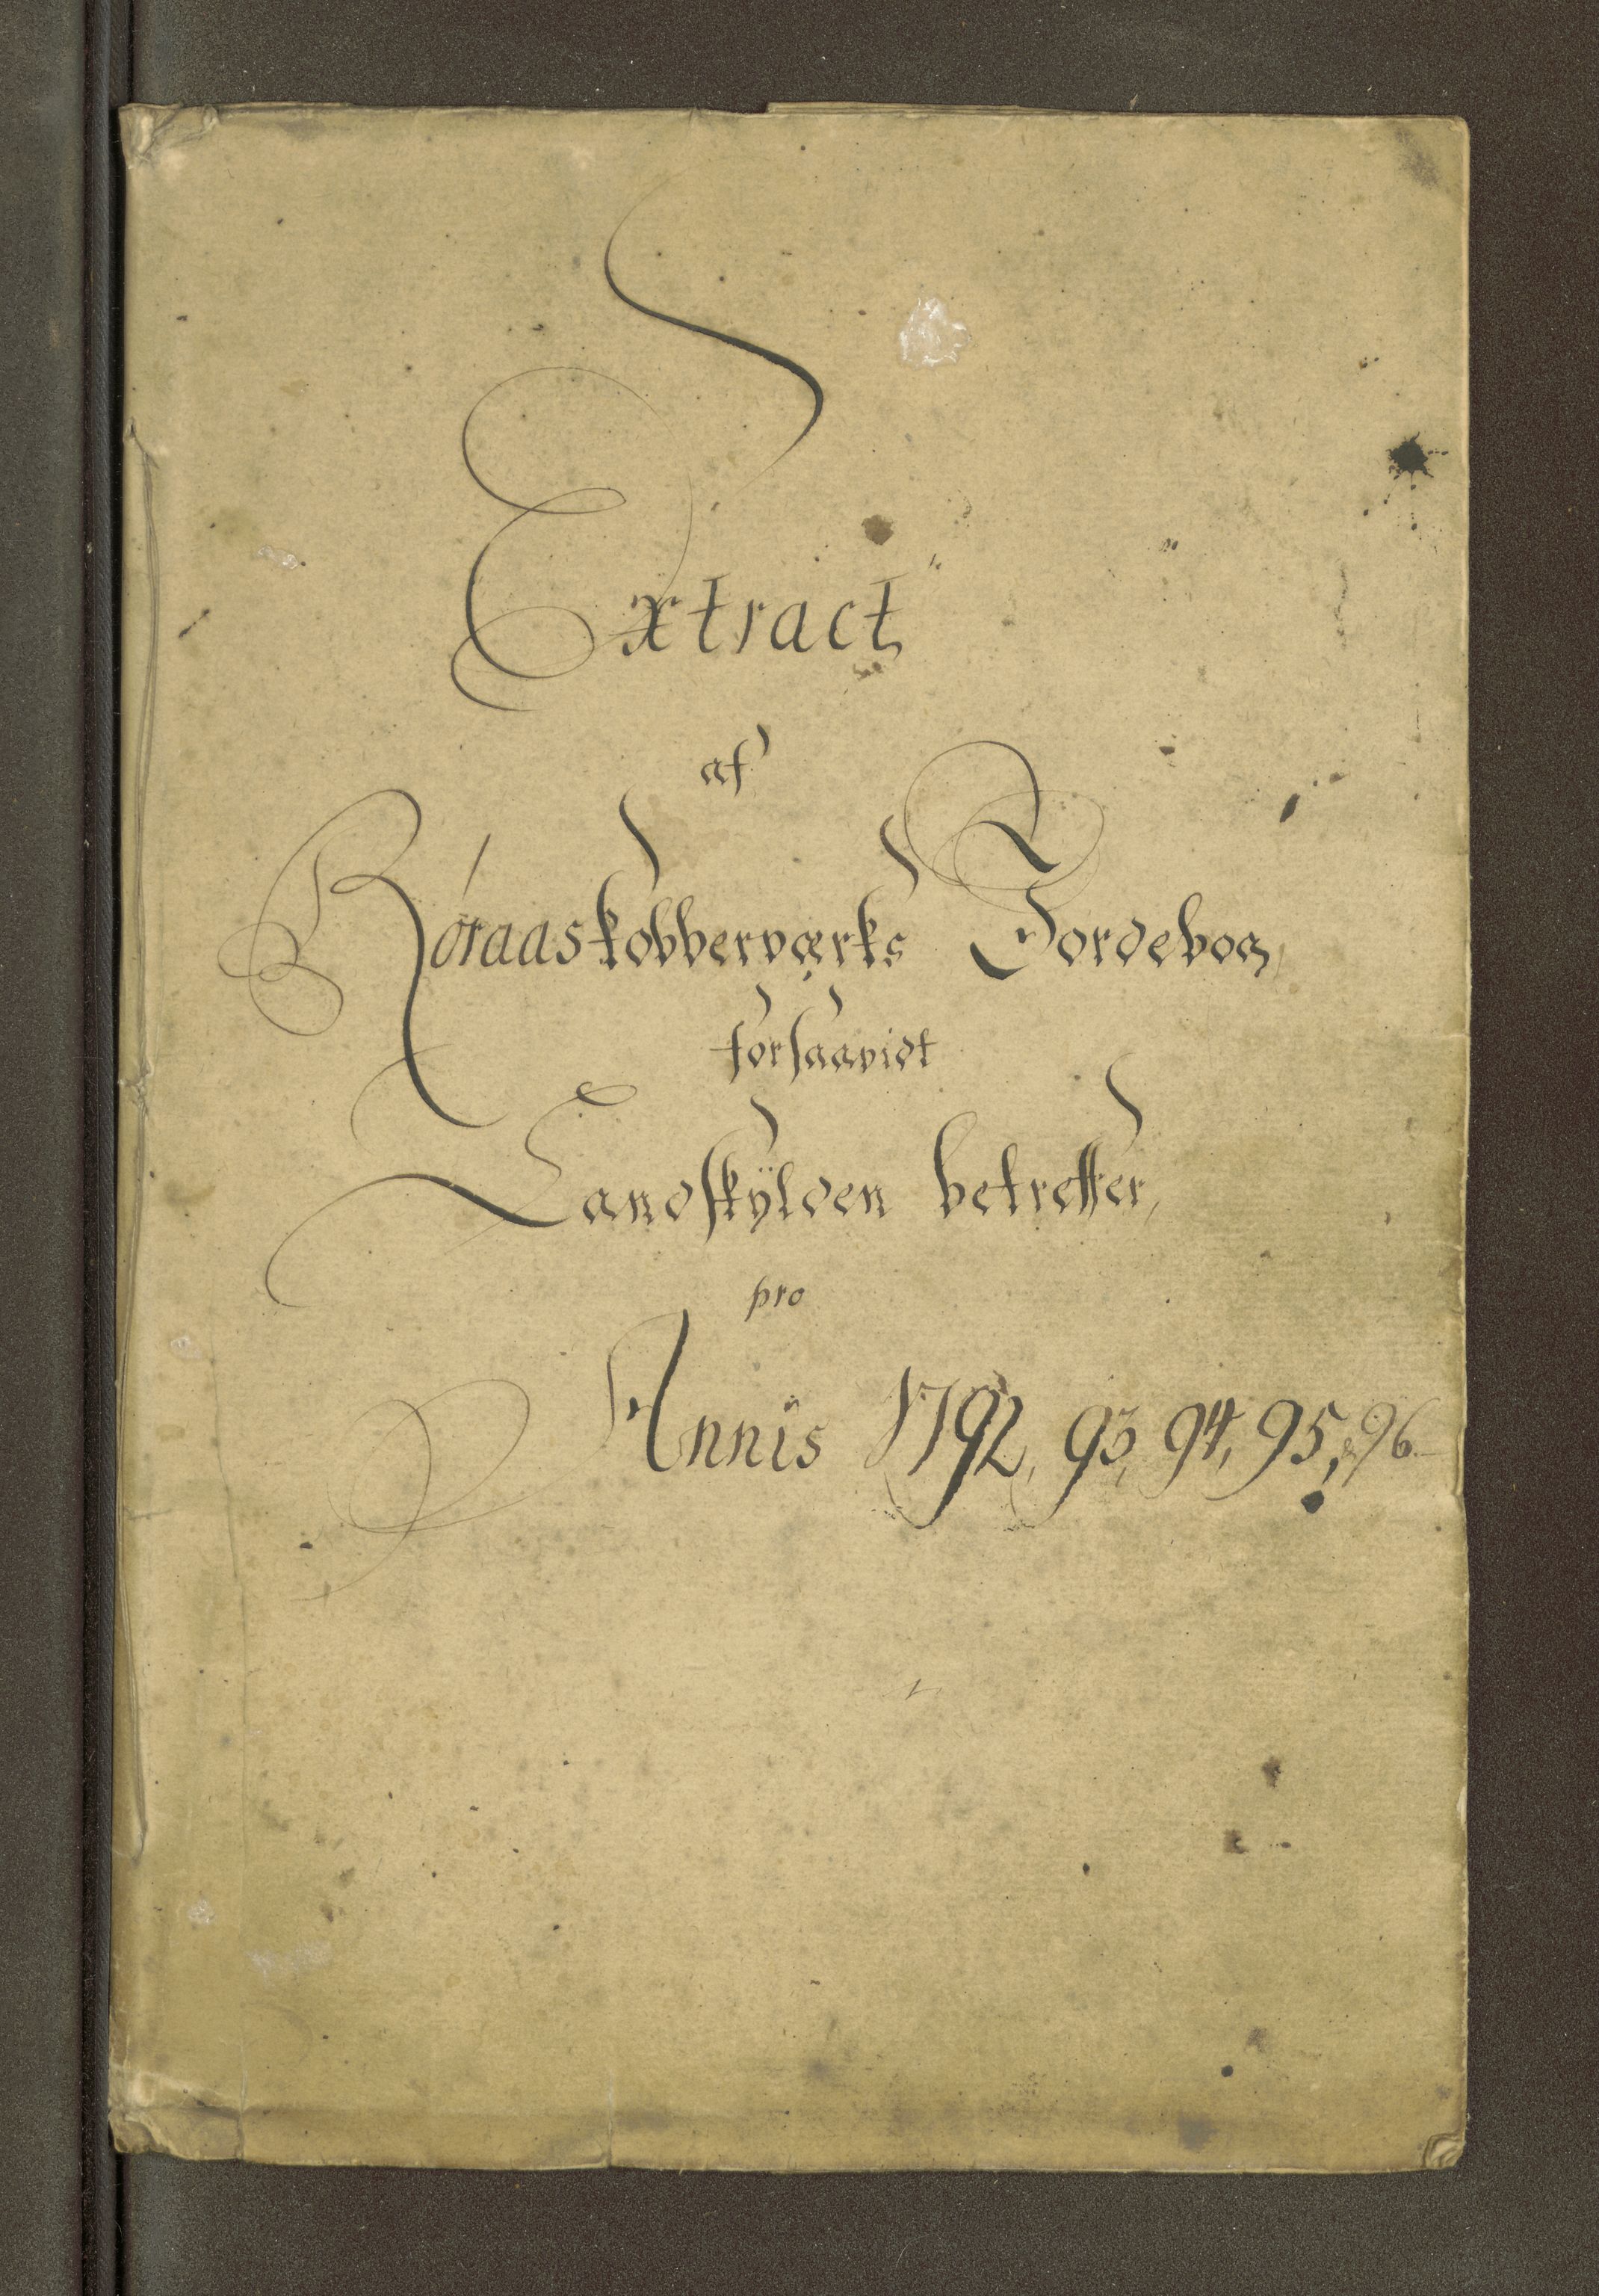 Extract
af
Røraaskobberværks Jordebog,
forsaavidt
Landskÿlden betreffer,
pro
Annis 1792, 93, 94, 95, & 96